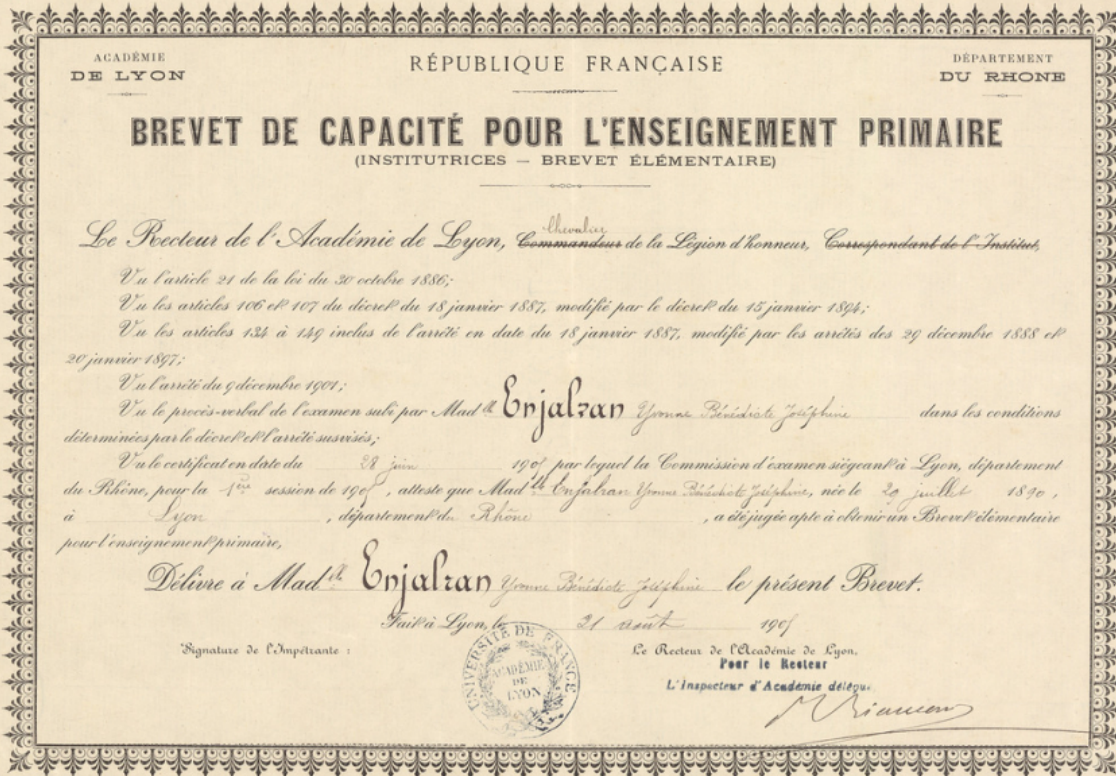 ACADÉMIE
DE LYON
RÉPUBLIQUE FRANÇAISE
DÉPARTEMENT
DU RHONE
BREVET DE CAPACITÉ POUR L'ENSEIGNEMENT PRIMAIRE
(INSTITUTRICES — BREVET ÉLÉMENTAIRE)
Chevalier
Le Recteur de l'Académie de Lyon, Commandeur de la Légion d'honneur, Correspondant de l'Institut,
Vu l'article 21 de la loi du 30 octobre 1886;
Vu les articles 106 et 107 du décret du 18 janvier 1887, modifié par le décret du 15 janvier 1894;
Vu les articles 134 à 149 inclus de l'arrêté en date du 18 janvier 1887, modifié par les arrêtés des 29 décembre 1888 et
20 janvier 1897;
Vu l'arrêté du 9 décembre 1901;
Vu le procès-verbal de l'examen subi par Mad elle Enjalran Yvonne Bénédicte Joséphine dans les conditions
déterminées par le décret et l'arrêté susvisés;
Vu le certificat en date du 28 juin par lequel la Commission d'examen siégeant à Lyon, département
du Rhône, pour la 1ère session de, atteste que Mad elle Enjalran Yvonne Bénédicte Joséphine, née le 29 juillet 1890,
à Lyon, département du Rhône, a été jugée apte à obtenir un Brevet élémentaire
pour l'enseignement primaire,
Délivre à Mad elle Enjalran Yvonne Bénédicte Joséphine le présent Brevet.
Fait à Lyon, le 21 août
Signature de l'Impétrante :
Le Recteur de l'Académie de Lyon,
Pour le Recteur
L'Inspecteur d'Académie délégué
UNIVERSITÉ DE FRANCE
ACADÉMIE
DE
LYON